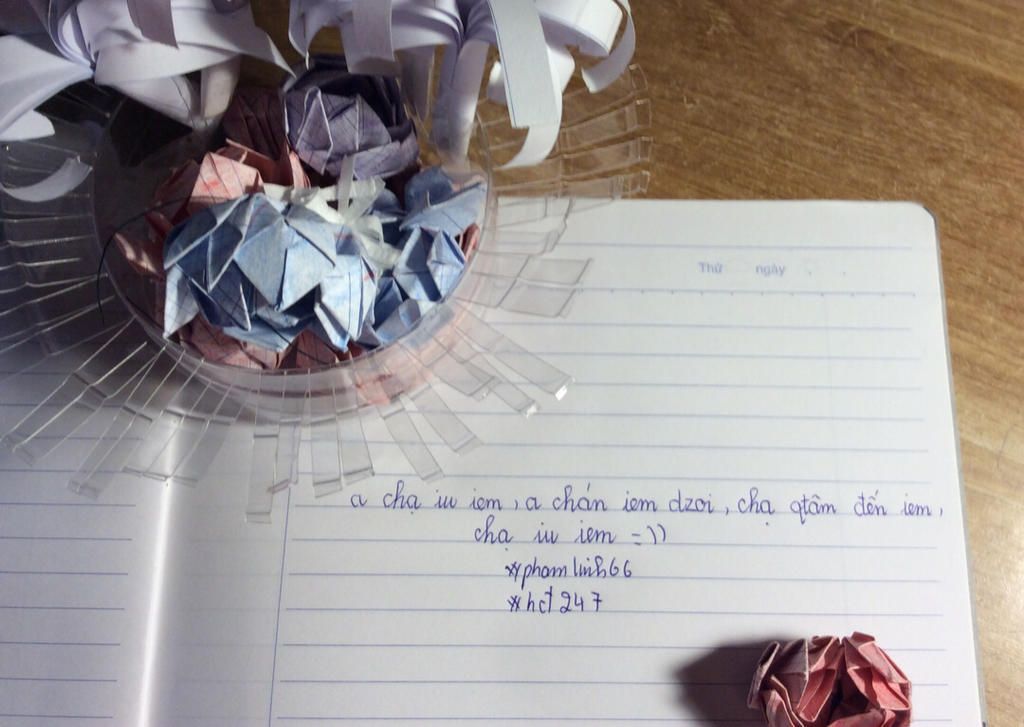 Thứ ngày
a chạ iu iem, a chán iem dzoi, chạ qtâm đến iem,
chạ iu iem =))
*phamlinh66
*hct247